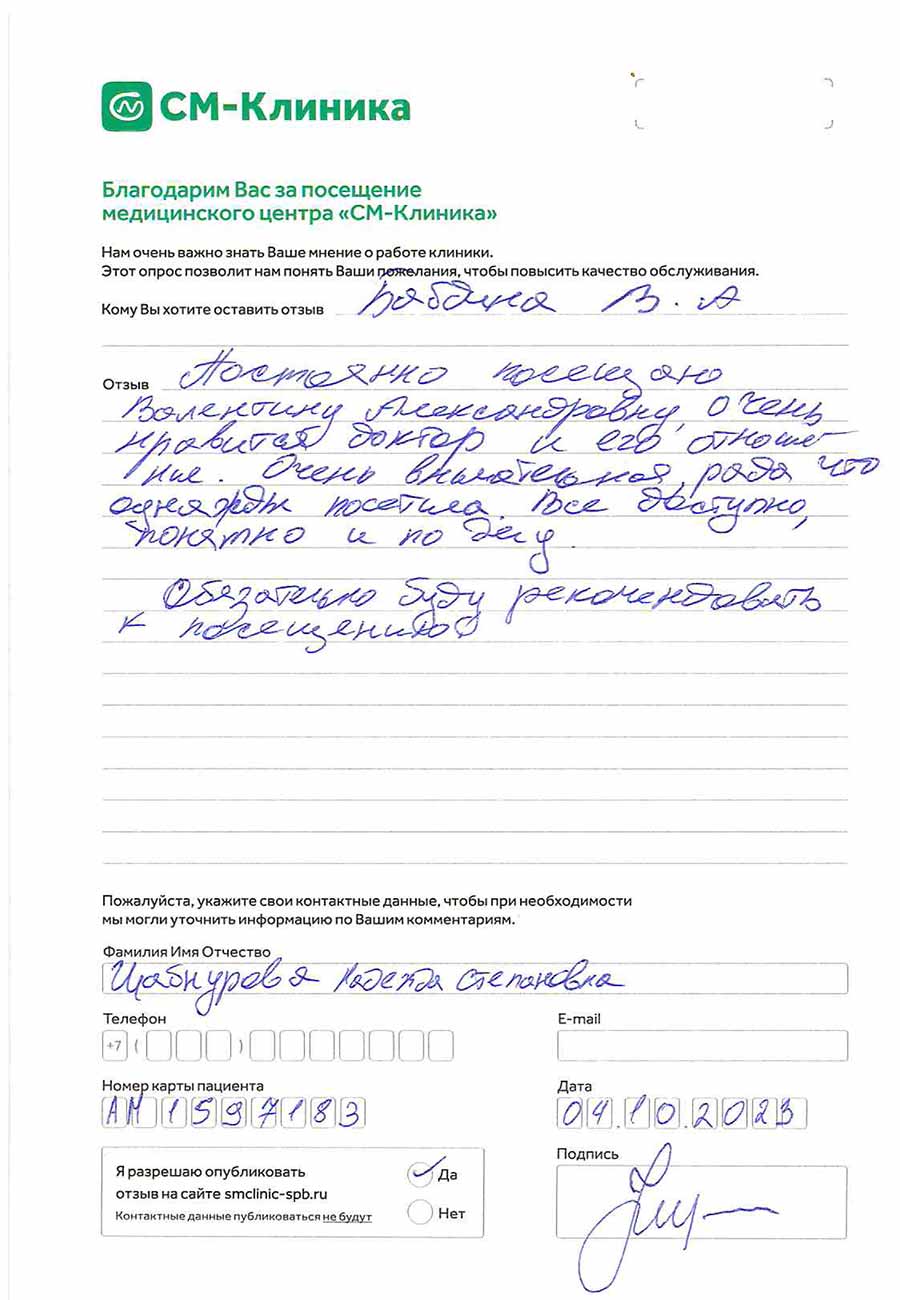 СМ-Клиника
Благодарим Вас за посещение
медицинского центра «СМ-Клиника»
Нам очень важно знать Ваше мнение о работе клиники.
Этот опрос позволит нам понять Ваши пожелания, чтобы повысить качество обслуживания.
Кому Вы хотите оставить отзыв В. А
Отзыв Постоянно посещаю
Валентину Александровну, очень
нравится доктор и его отноше
ние. Очень внимательная, рада что
однажды посетила. Все доступно,
понятно и по делу.
Обязательно буду рекомендовать
к посещению
Пожалуйста, укажите свои контактные данные, чтобы при необходимости
мы могли уточнить информацию по Вашим комментариям.
Фамилия Имя Отчество
Надежда Степановна
Телефон E-mail
+7 ( )
Номер карты пациента Дата
АМ1597183 04.10.2023
Я разрешаю опубликовать Да Подпись
отзыв на сайте smclinic-spb.ru
Контактные данные публиковаться не будут Нет